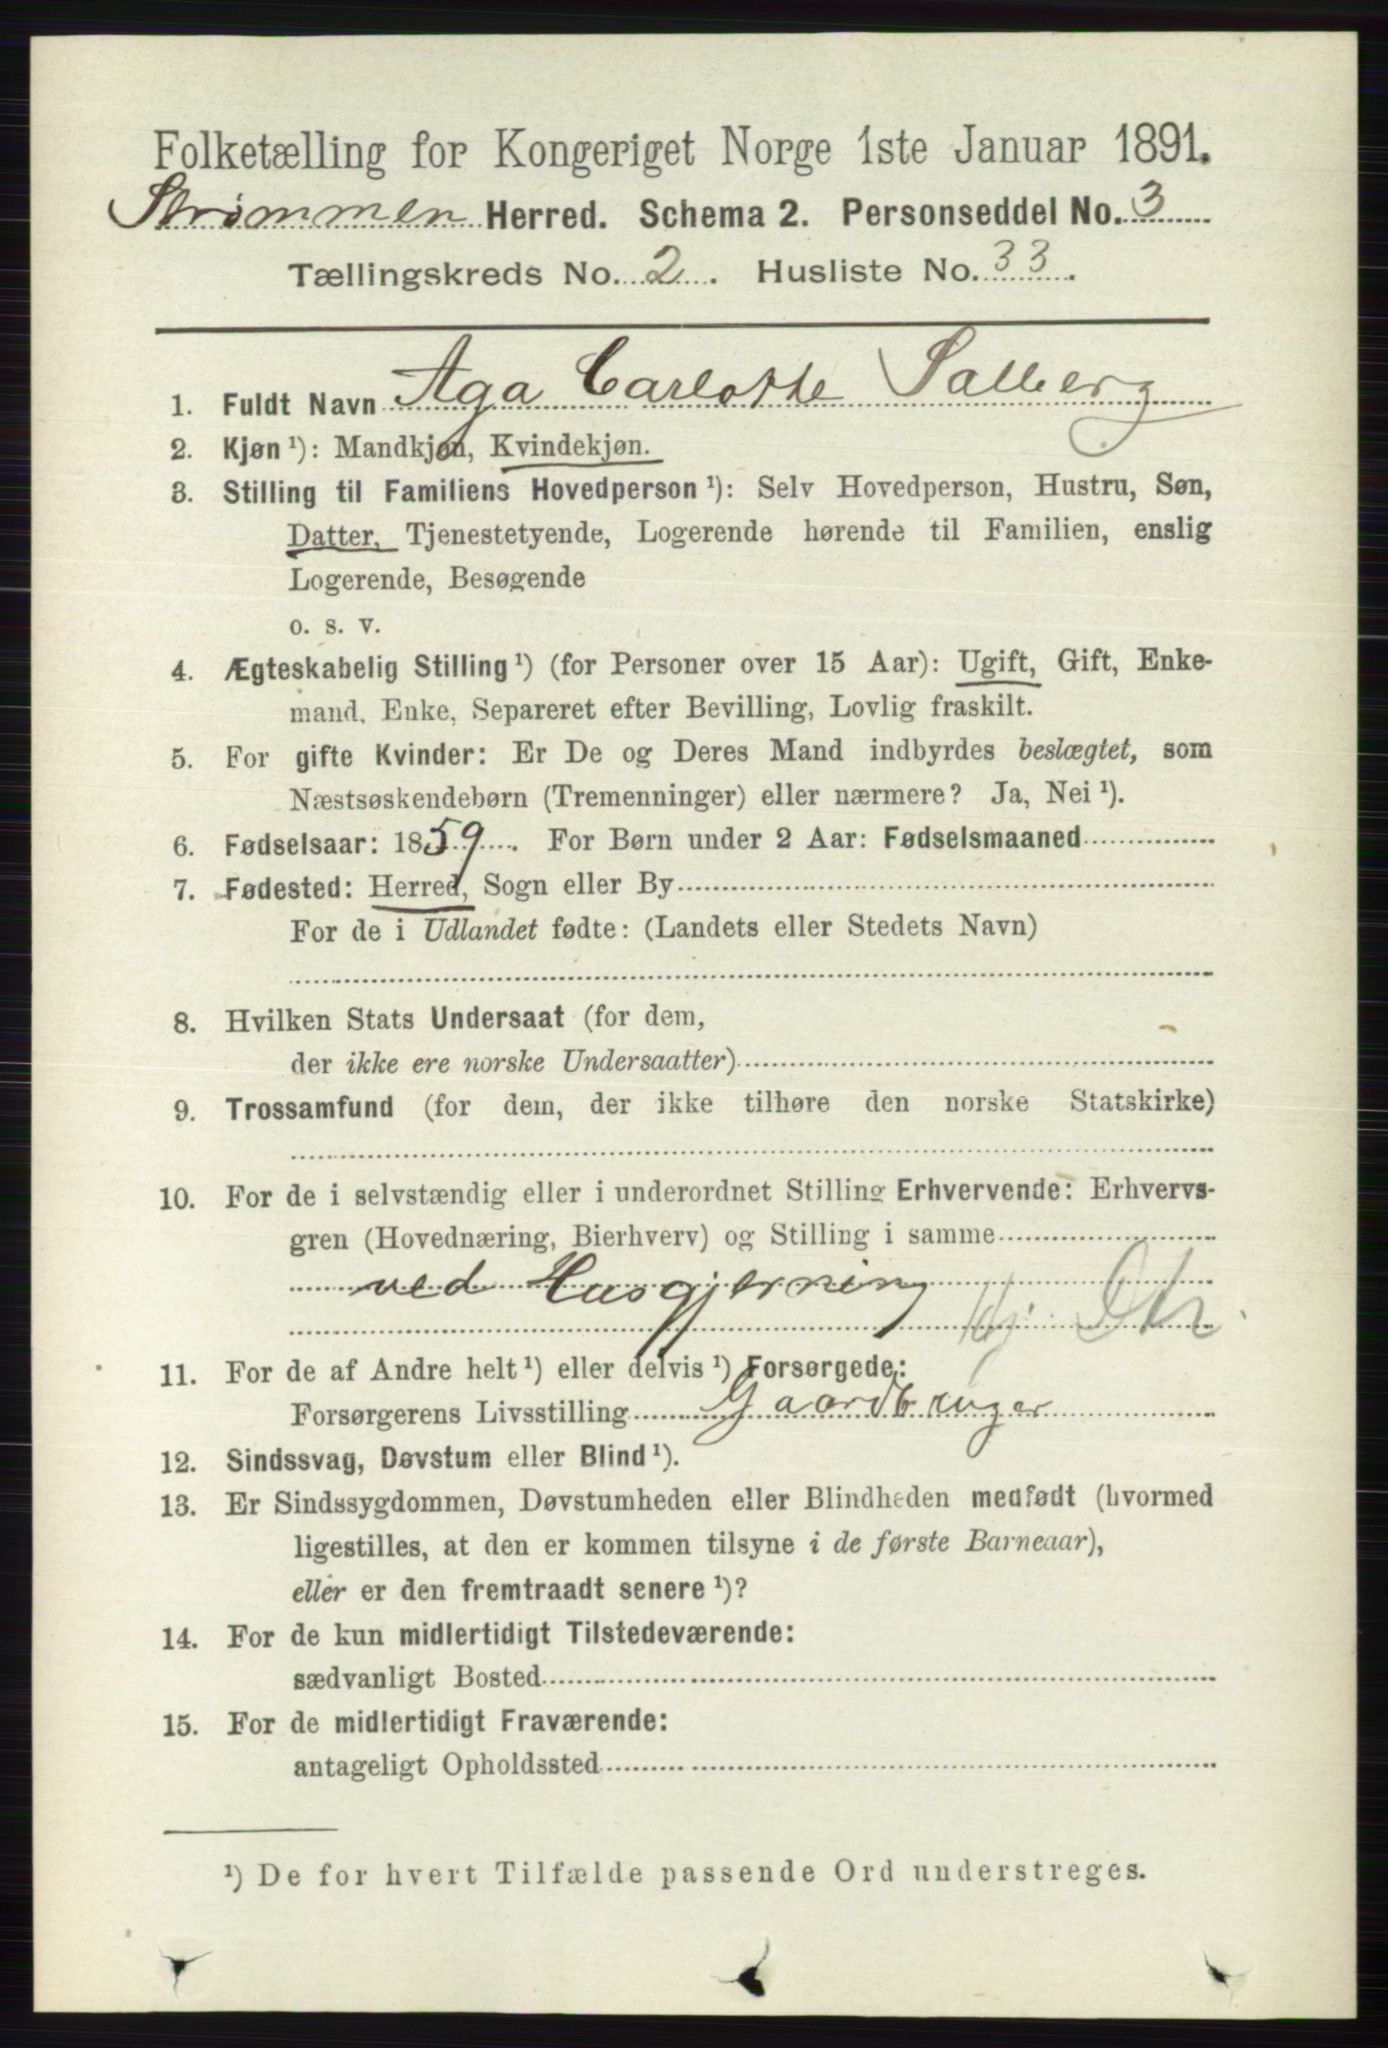 Folketælling for Kongeriget Norge 1ste Januar 1891.
Strømmen Herred. Schema 2. Personseddel No. 3
Tællingskreds No. 2. Husliste No. 33.
1. Fuldt Navn Aga Carlotte Salberg
2. Kjøn ¹): Mandkjøn, Kvindekjøn.
3. Stilling til Familiens Hovedperson ¹): Selv Hovedperson, Hustru, Søn,
Datter, Tjenestetyende, Logerende hørende til Familien, enslig
Logerende, Besøgende
o. s. v.
4. Ægteskabelig Stilling ¹) (for Personer over 15 Aar): Ugift, Gift, Enke-
mand, Enke, Separeret efter Bevilling, Lovlig fraskilt.
5. For gifte Kvinder: Er De og Deres Mand indbyrdes beslægtet, som
Næstsøskendebørn (Tremenninger) eller nærmere? Ja, Nei ¹).
6. Fødselsaar: 1859. For Børn under 2 Aar: Fødselsmaaned
7. Fødested: Herred, Sogn eller By
For de i Udlandet fødte: (Landets eller Stedets Navn)
8. Hvilken Stats Undersaat (for dem,
der ikke ere norske Undersaatter)
9. Trossamfund (for dem, der ikke tilhøre den norske Statskirke)
10. For de i selvstændig eller i underordnet Stilling Erhvervende: Erhvervs-
gren (Hovednæring, Bierhverv) og Stilling i samme
ved Husgjerning
11. For de af Andre helt ¹) eller delvis ¹) Forsørgede:
Forsørgerens Livsstilling Gaardbruger
12. Sindssvag, Døvstum eller Blind ¹).
13. Er Sindssygdommen, Døvstumheden eller Blindheden medfødt (hvormed
ligestilles, at den er kommen tilsyne i de første Barneaar),
eller er den fremtraadt senere ¹)?
14. For de kun midlertidigt Tilstedeværende:
sædvanligt Bosted
15. For de midlertidigt Fraværende:
antageligt Opholdssted
¹) De for hvert Tilfælde passende Ord understreges.